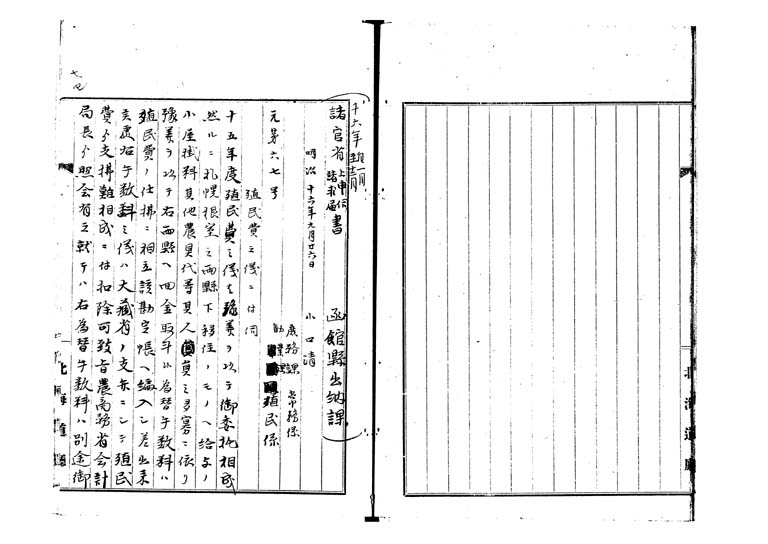 十六年 自一月 至十二月
諸官省 上申伺 請求届 書 函館縣出納課
明治十六年六月廿六日 小口清
元第六七号 庶務課 常務係
勧業課 殖民係
殖民費之儀ニ付伺
十五年度殖民費之儀豫算ヲ以テ御委托相成
然ルニ札幌根室之両縣下移住ノモノヘ給与ノ
小屋掛料其他農具代等其人員之多寡ニ依リ
豫算ヲ以テ右両縣ヘ回金取斗候為替手数料ハ
殖民費ノ仕拂ニ相立該勘定帳ヘ編入シ差出来
候處右手数料之儀ハ大藏省ノ支弁ニシテ殖民
費ヨリ支拂難相成ニ付扣除可致旨農商務省会計
局長ヨリ照会有之就テハ右為替手数料ハ別途御
北海道廳
北海道廳